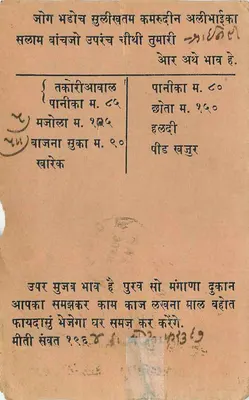 जोग भडोच सुलीखतम कमरुदीन अलीभाईका
सलाम बांचजो उपरंच चीथी तुमारी
आर अथे भाव है.
तकोरीआवाल
पानीका म. ८५
मजोला म. १२५
वाजना सुका म. ९०
खारेक
पानीका म. ८०
छोता म. १५०
हलदी
पीड खजुर
उपर मुजब भाव है पुरव सो मंगाणा दुकान
आपका समझकर काम काज लखना माल बहोत
फायदासुं भेजेगा घर समज कर करेंगे.
मीती संवत १९६